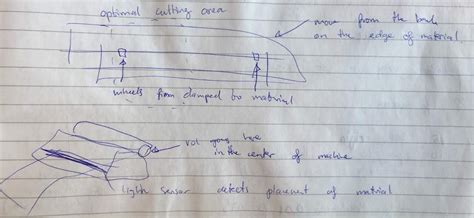 optimal cutting area
move from the back
on the edge of material
wheels from damped to material
rol goes here
in the center of machine
light sensor detects placement of material